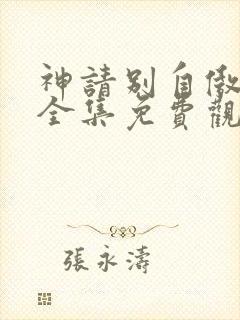 神請別自傲
全集免費觀
張永濤